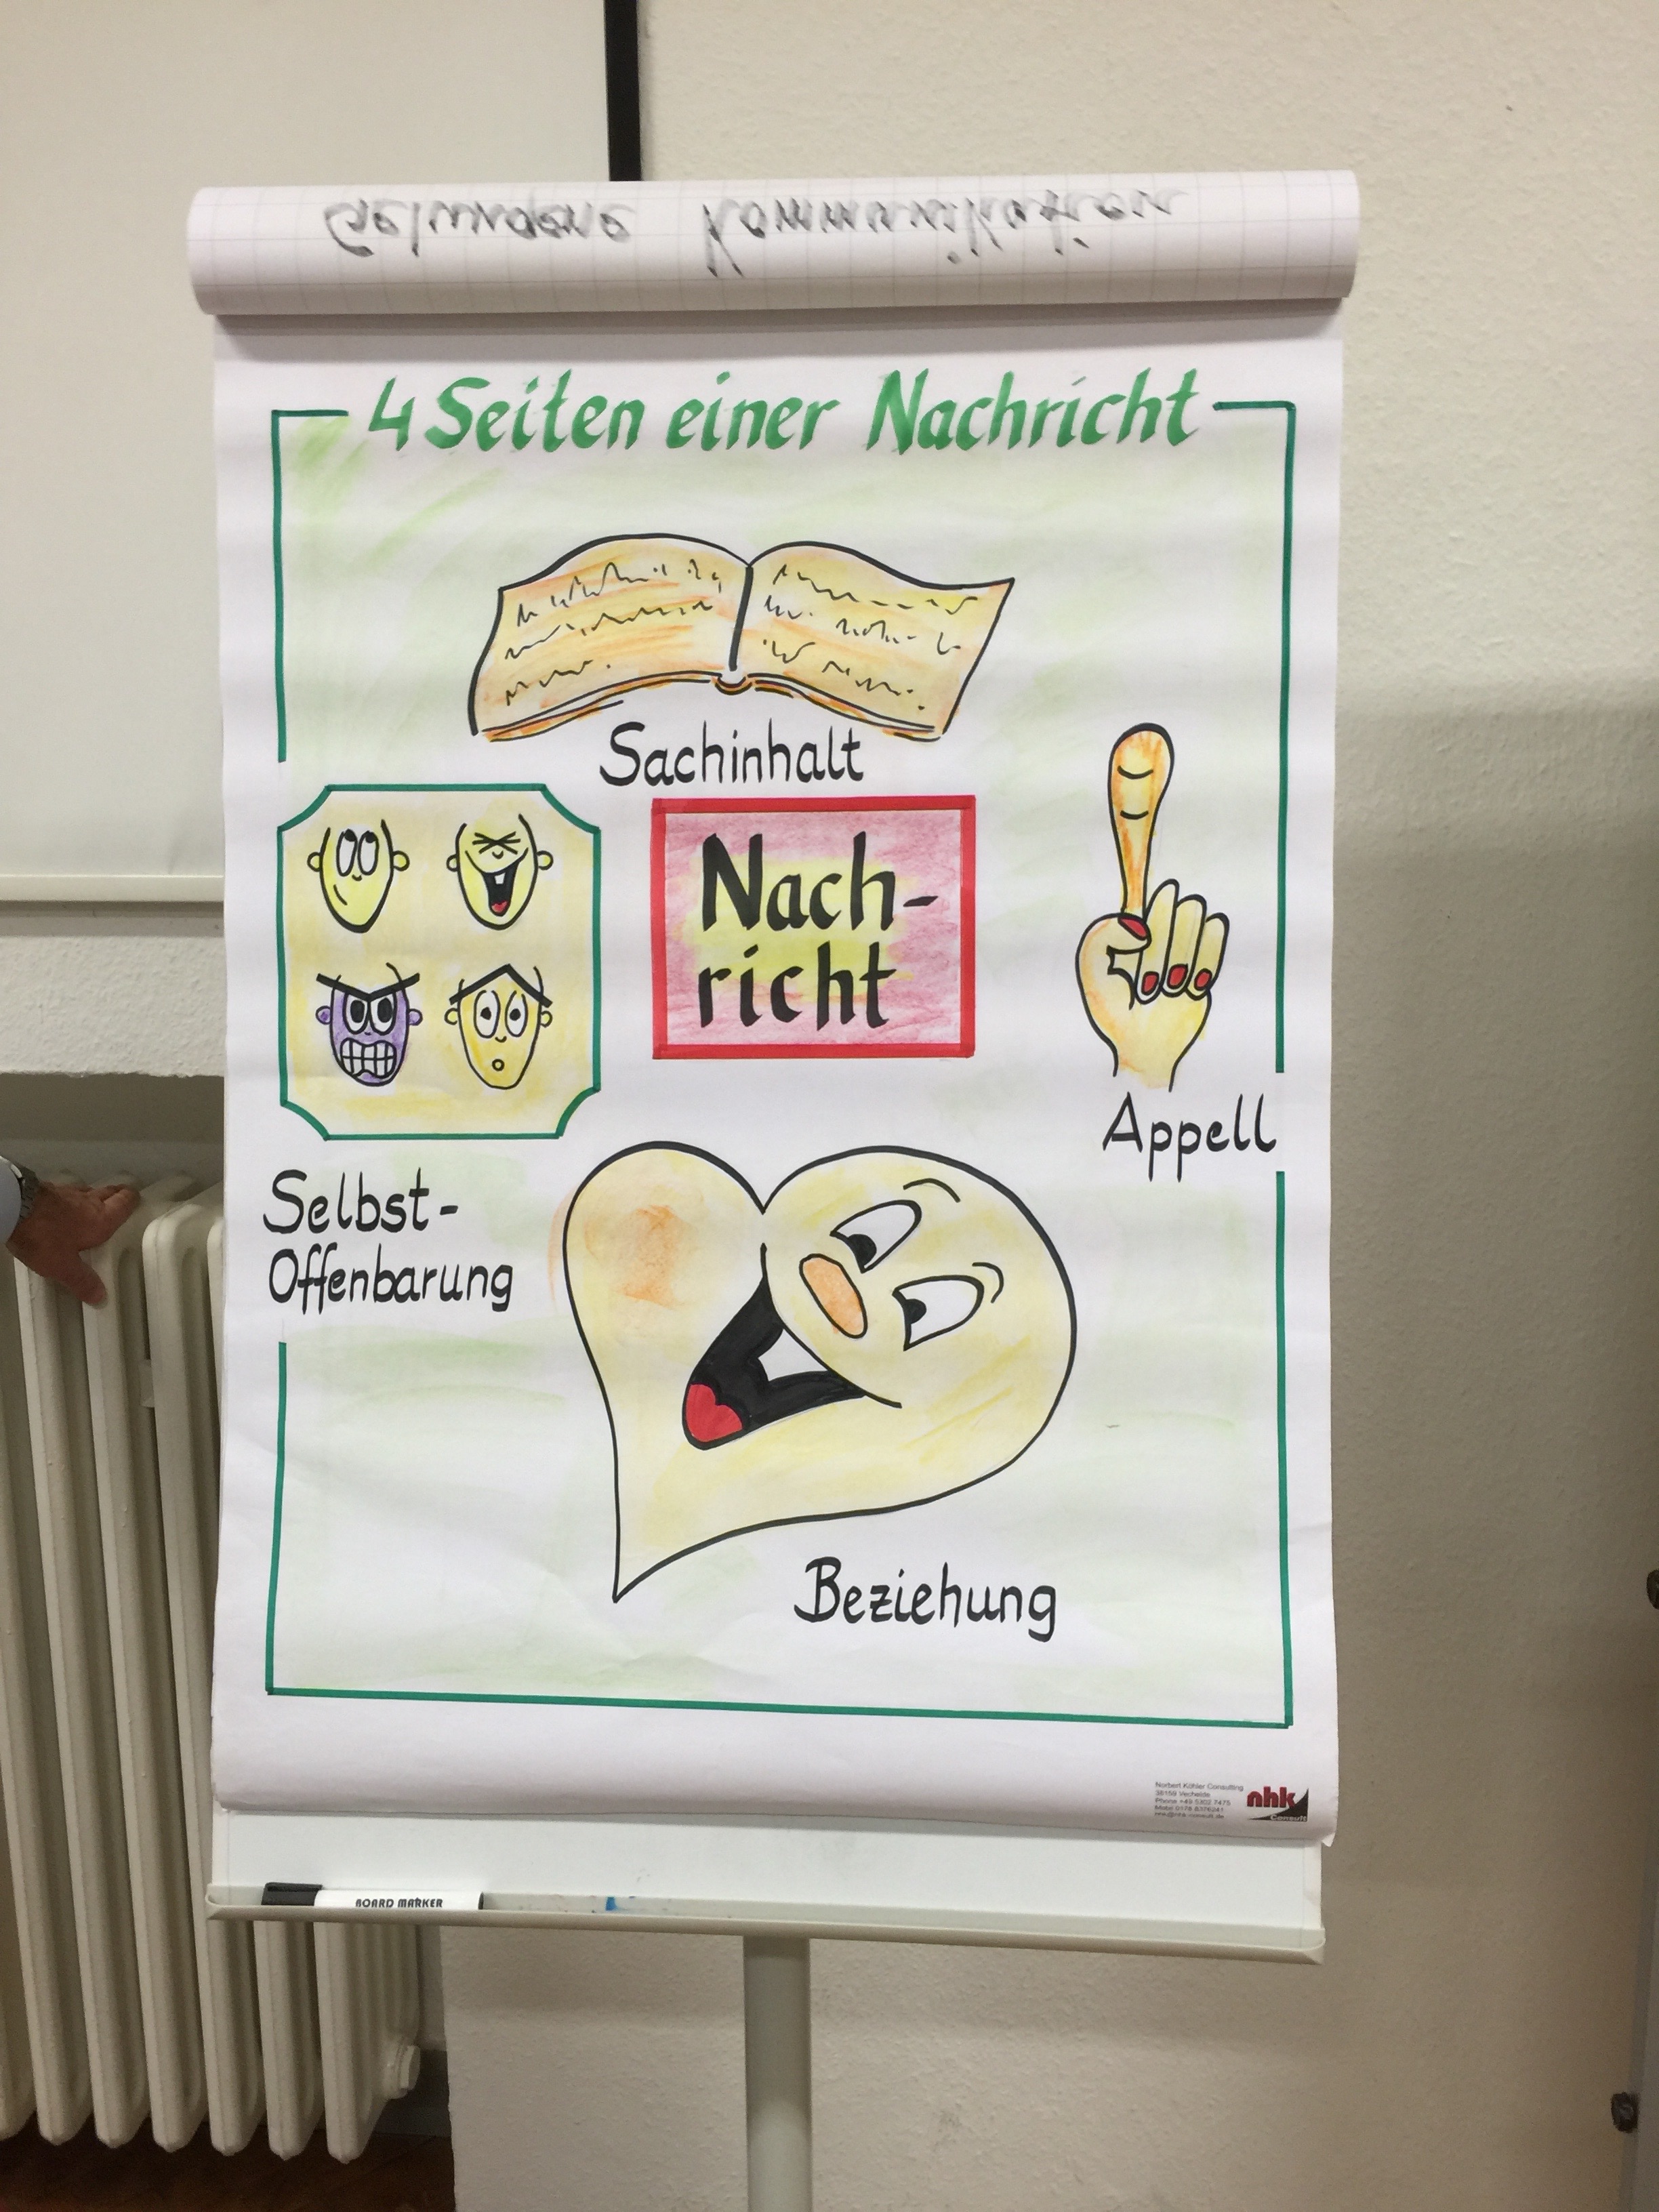 4 Seiten einer Nachricht
Sachinhalt
Nach-
richt
Appell
Selbst-
Offenbarung
Beziehung
Norbert Köhler Consulting
38159 Vechelde
Phone +49 5302 7475
nhk
Consult
BOARD MARKER